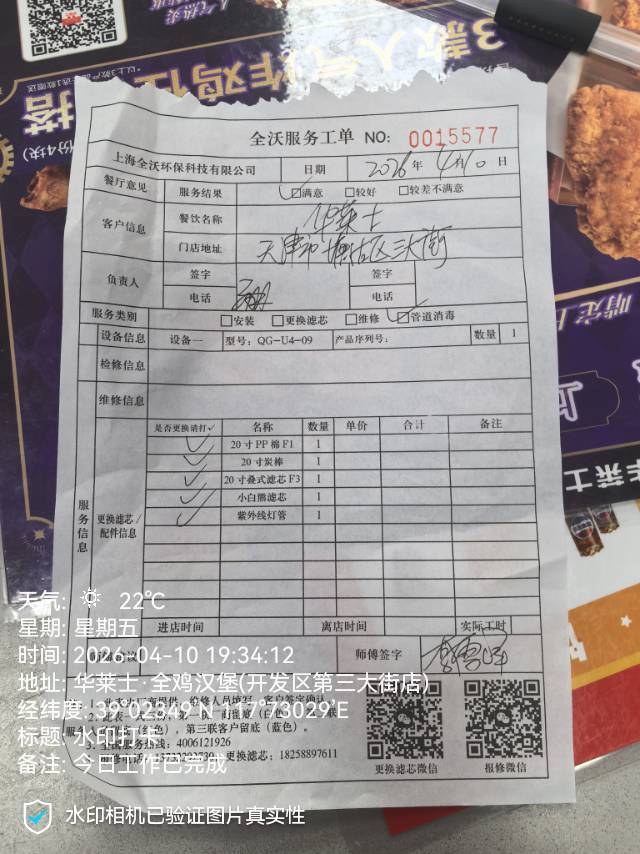 3款人气炸鸡任
搭
全沃服务工单 NO: 0015577
上海全沃环保科技有限公司 日期 2026年4月10日
餐厅意见 服务结果 ☑满意 □较好 □较差不满意
客户信息 餐饮名称 华莱士
门店地址 天津市塘沽区三大街
负责人 签字 签字
电话 电话
服务类别 □安装 □更换滤芯 □维修 ☑管道消毒
设备信息 设备一 型号: QG-U4-09 产品序列号: 数量 1
检修信息
维修信息
服务信息 更换滤芯/配件信息
是否更换请打✓ 名称 数量 单价 合计 备注
✓ 20寸PP棉F1 1
✓ 20寸炭棒 1
✓ 20寸叠式滤芯F3 1
✓ 小白熊滤芯 1
✓ 紫外线灯管 1
进店时间 离店时间 实际工时
师傅签字
第三联客户留底（蓝色）。
4006121926
更换滤芯: 18258897611
更换滤芯微信 报修微信
天气: 22℃
星期: 星期五
时间: 2026-04-10 19:34:12
地址: 华莱士·全鸡汉堡(开发区第三大街店)
经纬度: 39°02349'N 117°73029'E
标题: 水印打卡
备注: 今日工作已完成
水印相机已验证图片真实性